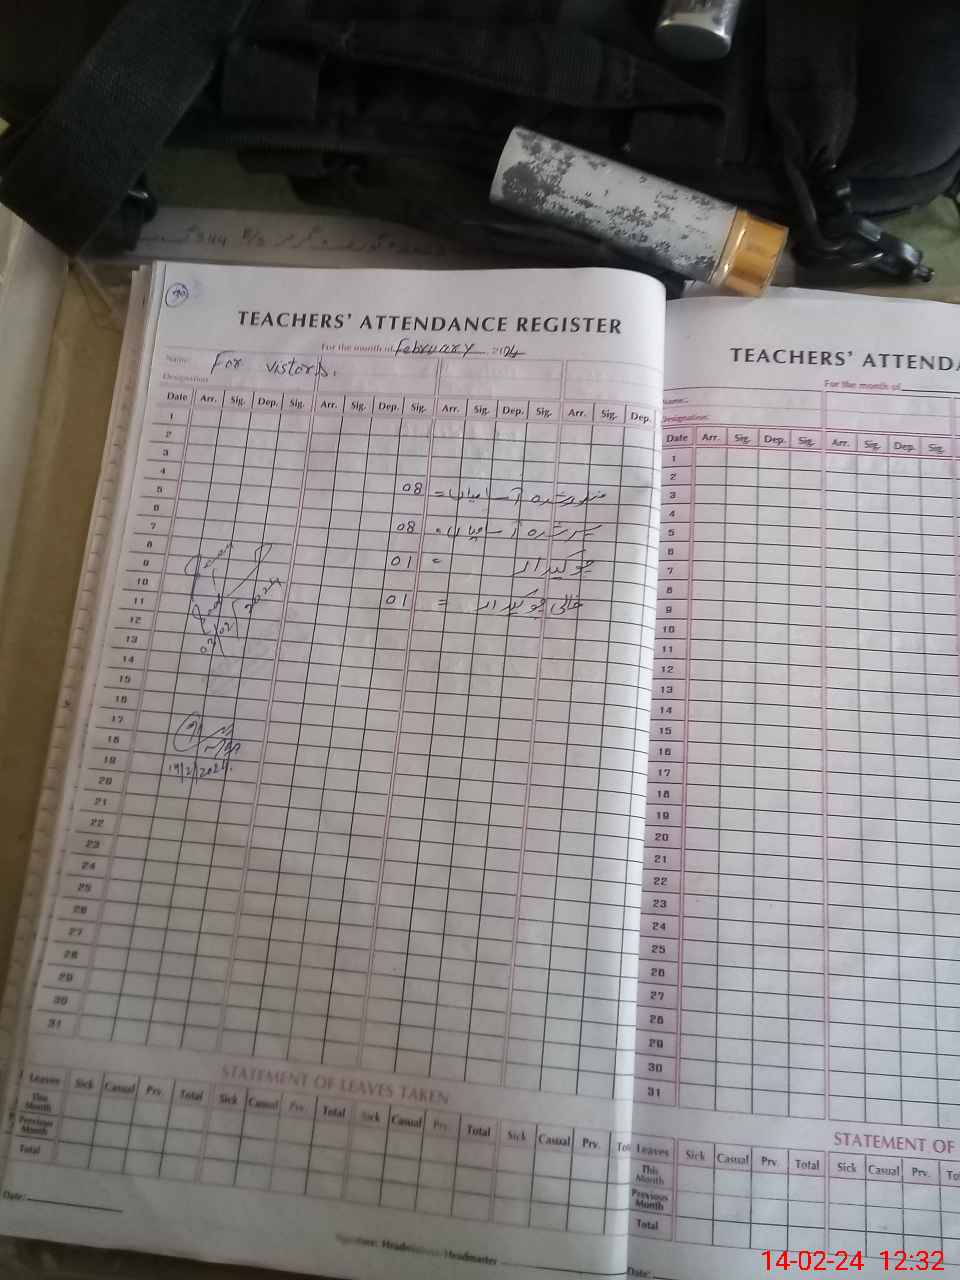 TEACHERS' ATTENDANCE REGISTER
For the month of February 2024
Name: For vistors.
Designation
Date Arr. Sig. Dep. Sig. Arr. Sig. Dep. Sig. Arr. Sig. Dep. Sig. Arr. Sig. Dep.
1
2
3
4
5
6
7
8
9
10
11
12
13
14
15
16
17
18
19
20
21
22
23
24
25
26
27
28
29
30
31
منظور شدہ آسامیاں = 08
پُر شدہ آسامیاں = 08
چوکیدار = 01
خالی چوکیدار = 01
02/02/2024
19/2/2024.
STATEMENT OF LEAVES TAKEN
Leaves Sick Casual Prv. Total Sick Casual Prv. Total Sick Casual Prv. Total Sick Casual Prv.
This Month
Previous Month
Total
Date:
Signature: Headmistress/Headmaster
TEACHERS' ATTENDA
For the month of
Name:
Designation:
Date Arr. Sig. Dep. Sig. Arr. Sig. Dep. Sig.
1
2
3
4
5
6
7
8
9
10
11
12
13
14
15
16
17
18
19
20
21
22
23
24
25
26
27
28
29
30
31
STATEMENT OF
Leaves Sick Casual Prv. Total Sick Casual Prv.
This Month
Previous Month
Total
Date:
14-02-24 12:32